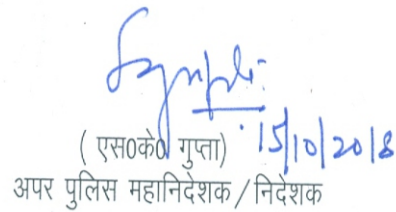 15/10/2018
( एस0के0 गुप्ता)
अपर पुलिस महानिदेशक / निदेशक